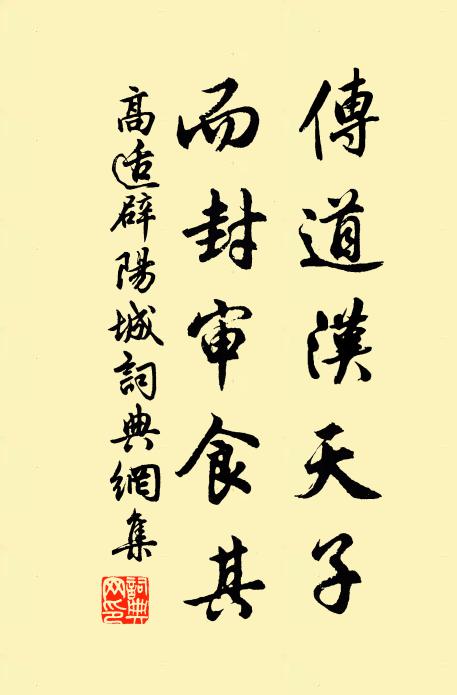 傳道漢天子
而封审食其
高适辟陽城詞典網集
詞典
网印